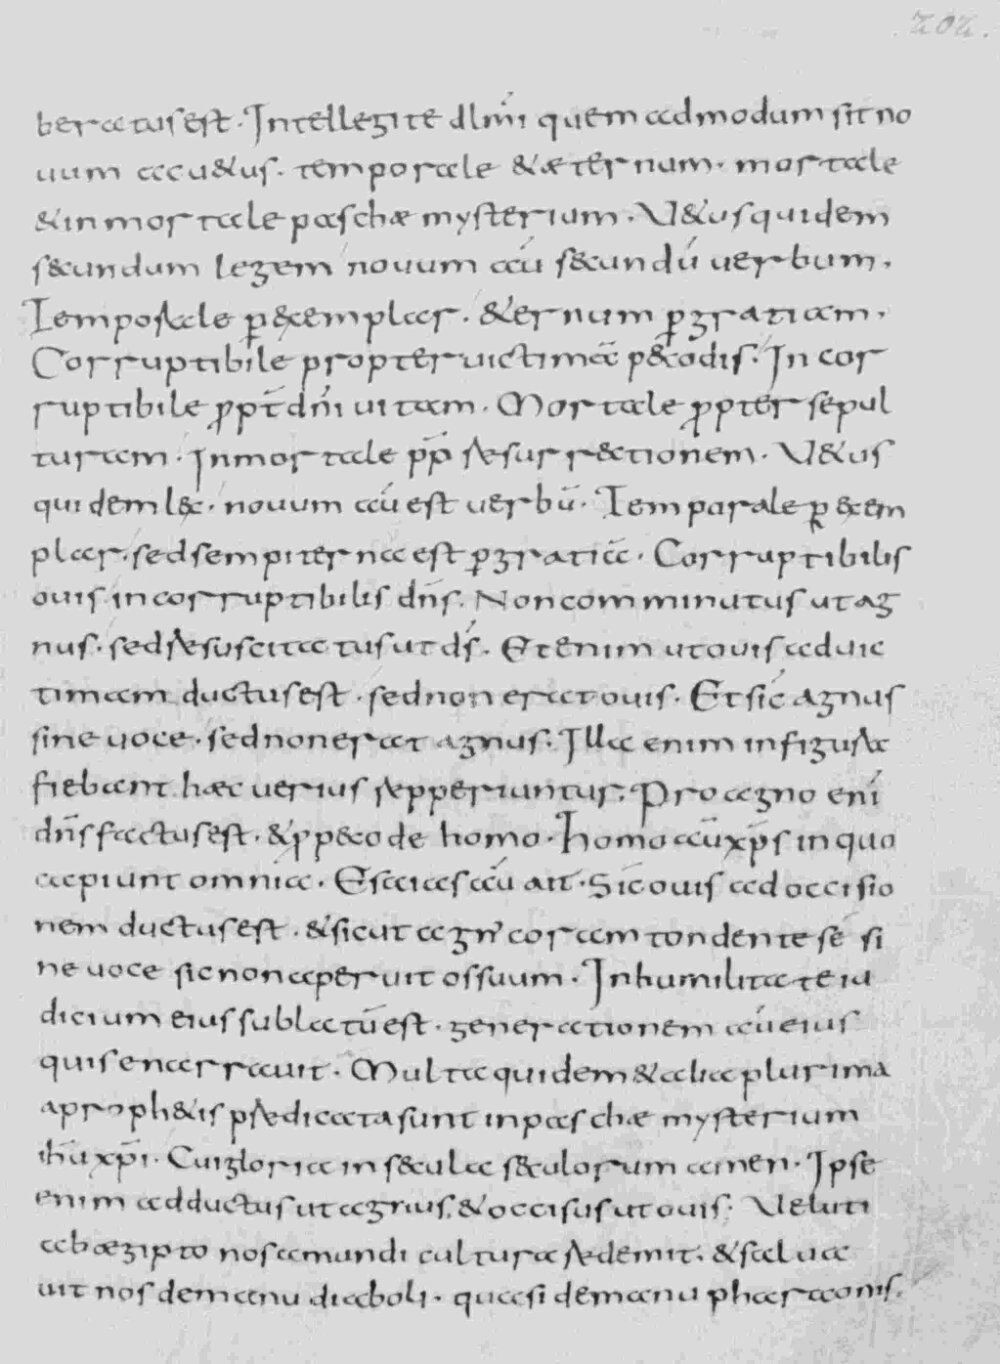 202.
beratus est. Intellegite dl̄mi quem admodum sit no
uum ac u&us. temporale &æternum. mortale
&inmortale paschæ mysterium. U&us quidem
secundum legem nouum aū secundū uerbum.
Temporale p̱ exemplar. &ernum p̱ gratiam.
Corruptibile propter uictimā pecodis. In cor
ruptibile ꝓpt̄ dn̄i uitam. Mortale ꝓpter sepul
turam. Inmortale ꝓp̄ resurrectionem. U&us
quidem lex. nouum aū est uerbū. Temporale p̱ exem
plar. sed sempiterna est p̱ gratiā. Corruptibilis
ouis incorruptibilis dn̄s. Non comminutus ut ag
nus. sed resuscitatus ut ds̄. Etenim ut ouis ad uic
timam ductus est. sed non erat ouis. Et sic agnus
sine uoce. sed non erat agnus. Illa enim in figura
fiebant hæc uerius repperiuntur. Pro agno enī
dn̄s factus est. &ꝓ pecode homo. Homo aū xp̄s in quo
capiunt omnia. Esaias aū ait. Sic ouis ad occisio
nem ductus est. &sicut agn' coram tondente sē si
ne uoce sic non aperuit os suum. In humilitate iu
dicium eius sublatū est. generationem aū eius
quis enarrauit. Multa quidem &alia plurima
aproph&is prædicata sunt in paschæ mysterium
ih̄u xp̄i. Cui gloria in secula seculorum amen. Ipse
enim adductus ut agnus. &occisus ut ouis. Veluti
ab ægipto nos a mundi cultura redemit. &salua
uit nos de manu diaboli. quasi de manu pharaonis.